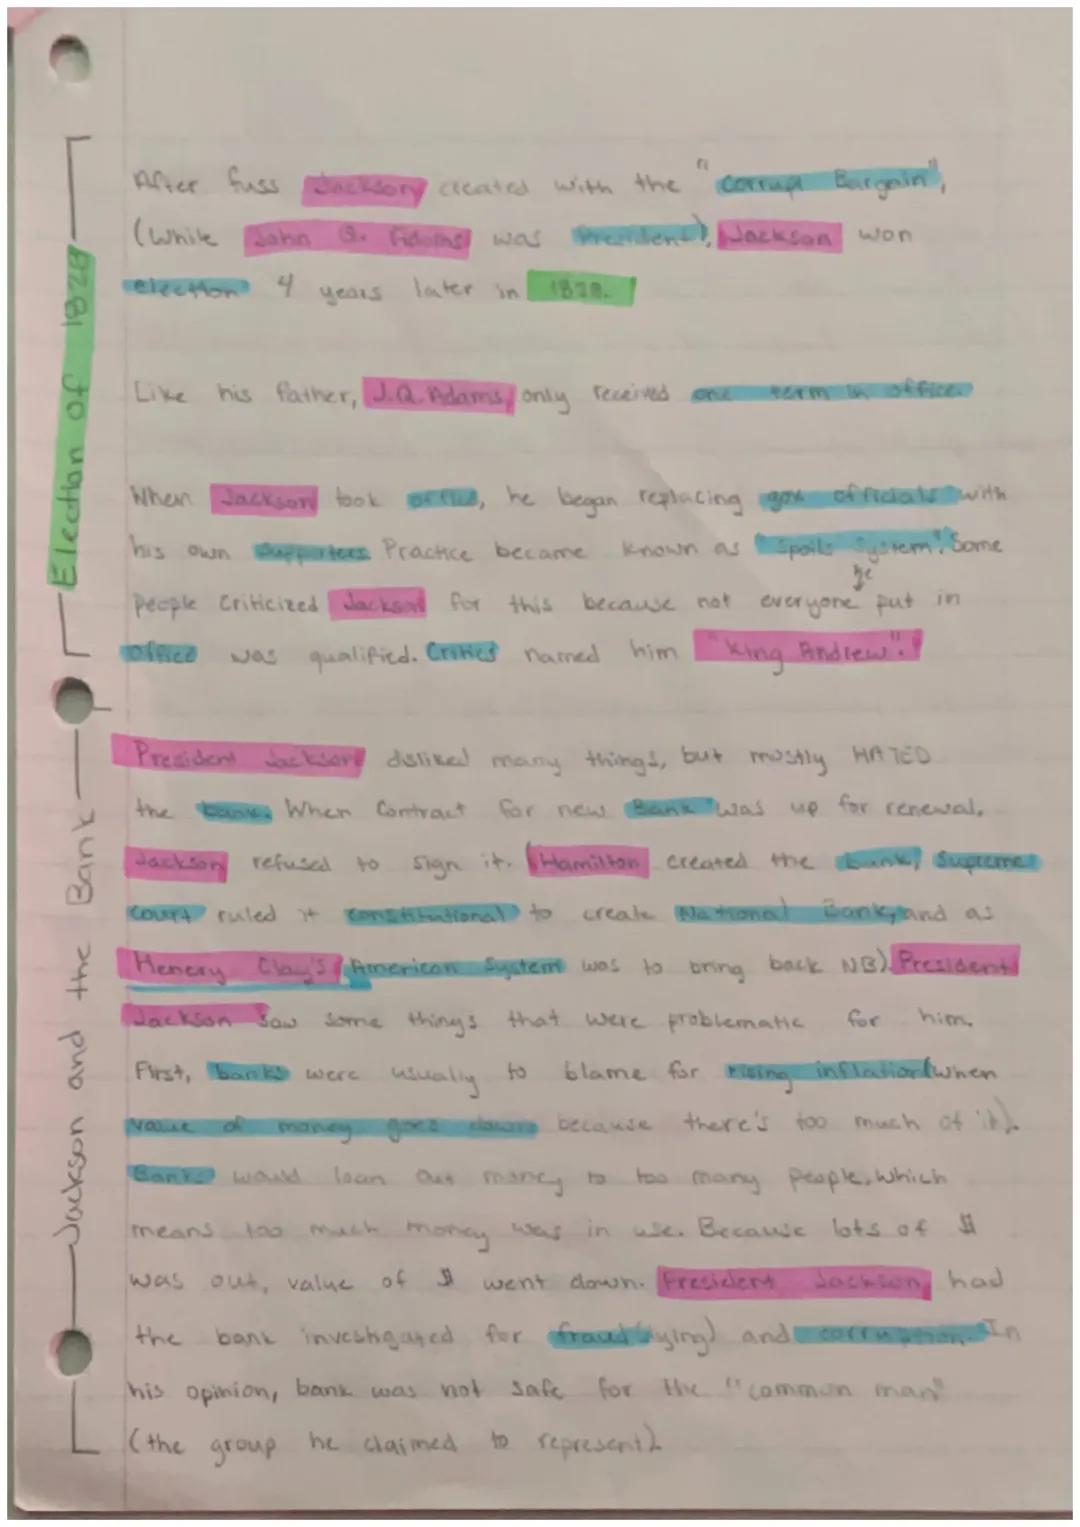 Election of 1828
After fuss Jackson created with the "Corrupt Bargain",
(While John Q. Adams was President), Jackson won
election 4 years later in 1828.
Like his father, J.Q. Adams, only received one term in office.
When Jackson took office, he began replacing gov officials with
his own supporters. Practice became known as "Spoils System". Some
he
people criticized Jackson for this because not everyone put in
office was qualified. Critics named him "King Andrew".
Jackson and the Bank
President Jackson disliked many things, but mostly HATED
the bank. When Contract for new Bank was up for renewal,
Jackson refused to sign it. (Hamilton created the bank, Supreme
Court ruled it constitutional to create National Bank, and as
Henery Clay's American System was to bring back NB). President
Jackson saw some things that were problematic for him.
First, banks were usually to blame for rising inflation (when
value of money goes down because there's too much of it).
Banks would loan out money to too many people, which
means too much money was in use. Because lots of $
was out, value of $ went down. President Jackson had
the bank investigated for fraud (lying) and corruption. In
his opinion, bank was not safe for the "common man"
(the group he claimed to represent).